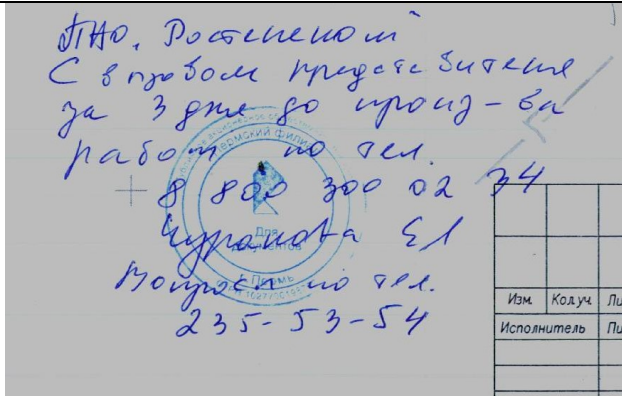 ПАО "Ростелеком"
С вызовом представителя
за 3 дня до произ-ва
работ по тел.
8 800 300 02 34
ЕЛ
Вопросы по тел.
235-53-54
Пермский филиал
Для
документов
г. Пермь
Изм. Кол.уч. Ли
Исполнитель Пи